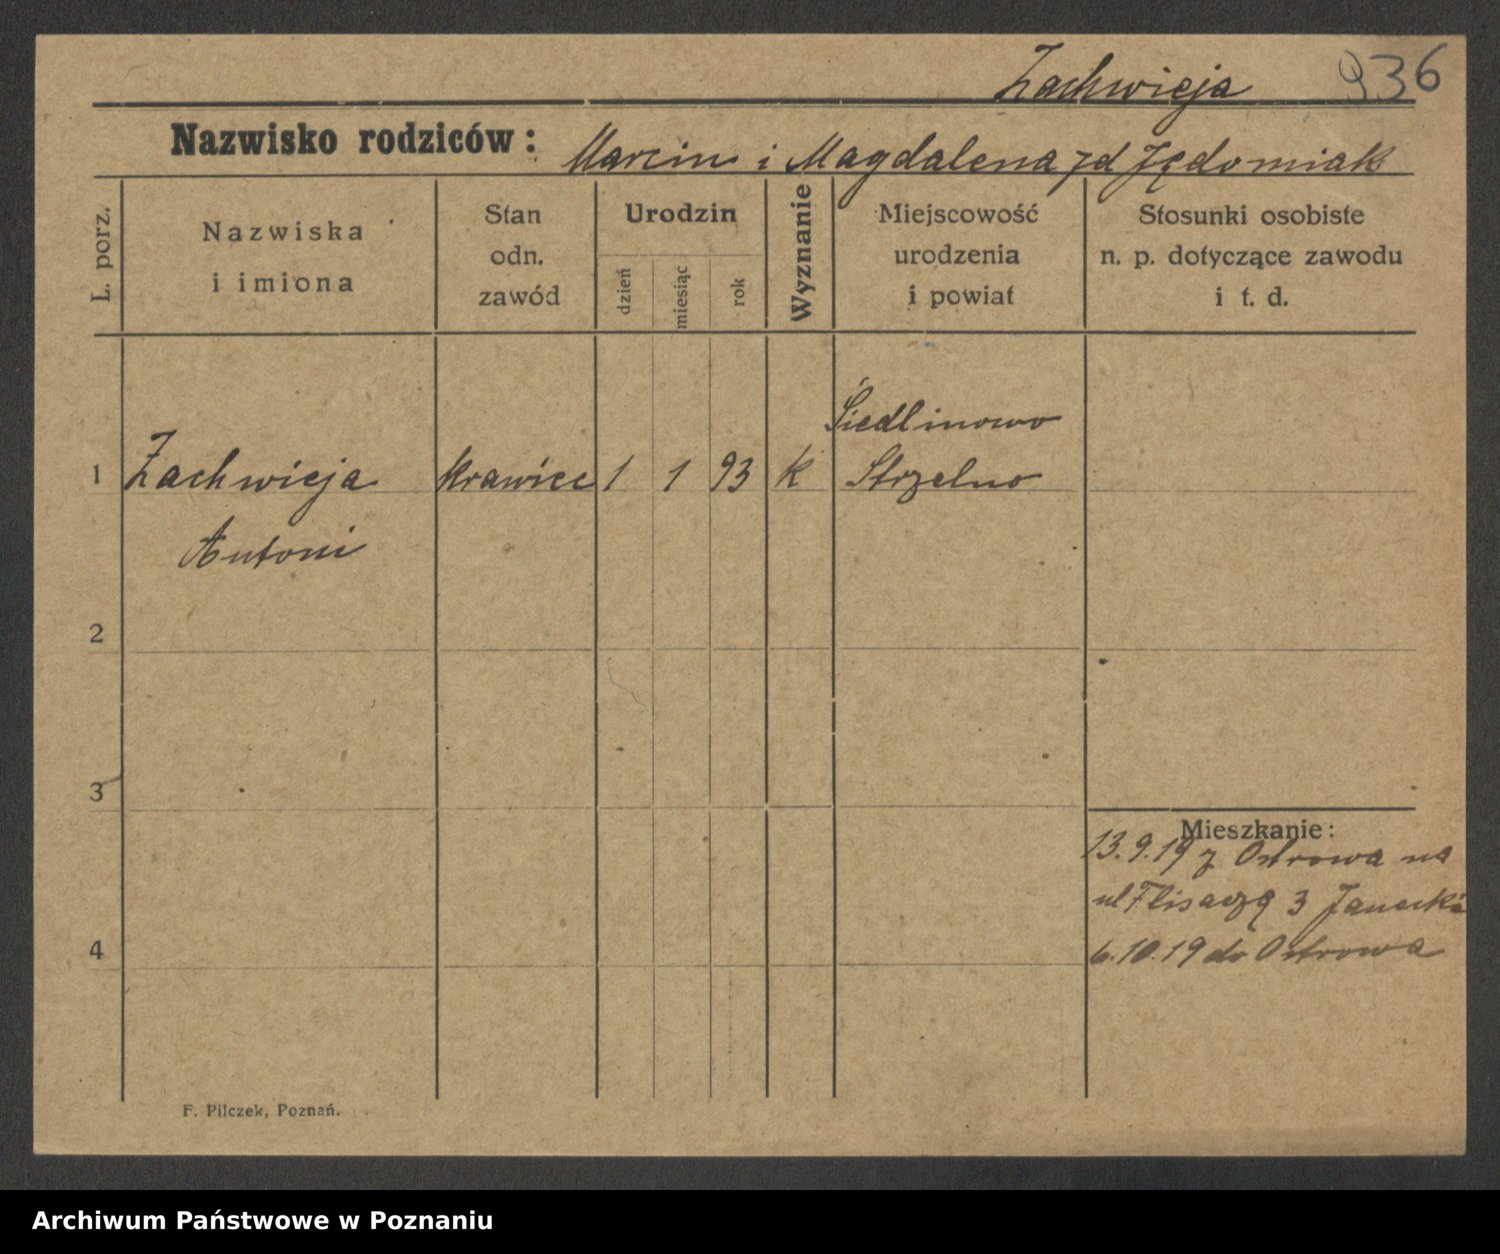 Zachwieja 936
Nazwisko rodziców: Marcin i Magdalena zd Jędomiak
L. porz.
Nazwiska
i imiona
Stan
odn.
zawód
Urodzin
dzień
miesiąc
rok
Wyznanie
Miejscowość
urodzenia
i powiat
Stosunki osobiste
n. p. dotyczące zawodu
i t. d.
Siedlinowo
1 Zachwieja krawiec 1 1 93 k Strzelno
Antoni
2
3
Mieszkanie:
13.9.19 z Ostrowa na
ul Flisaczą 3
4
6.10.19 do Ostrowa
F. Pilczek, Poznań.
Archiwum Państwowe w Poznaniu